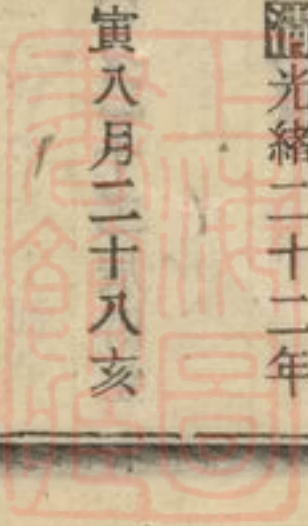 光緒二十二年
寅八月二十八亥